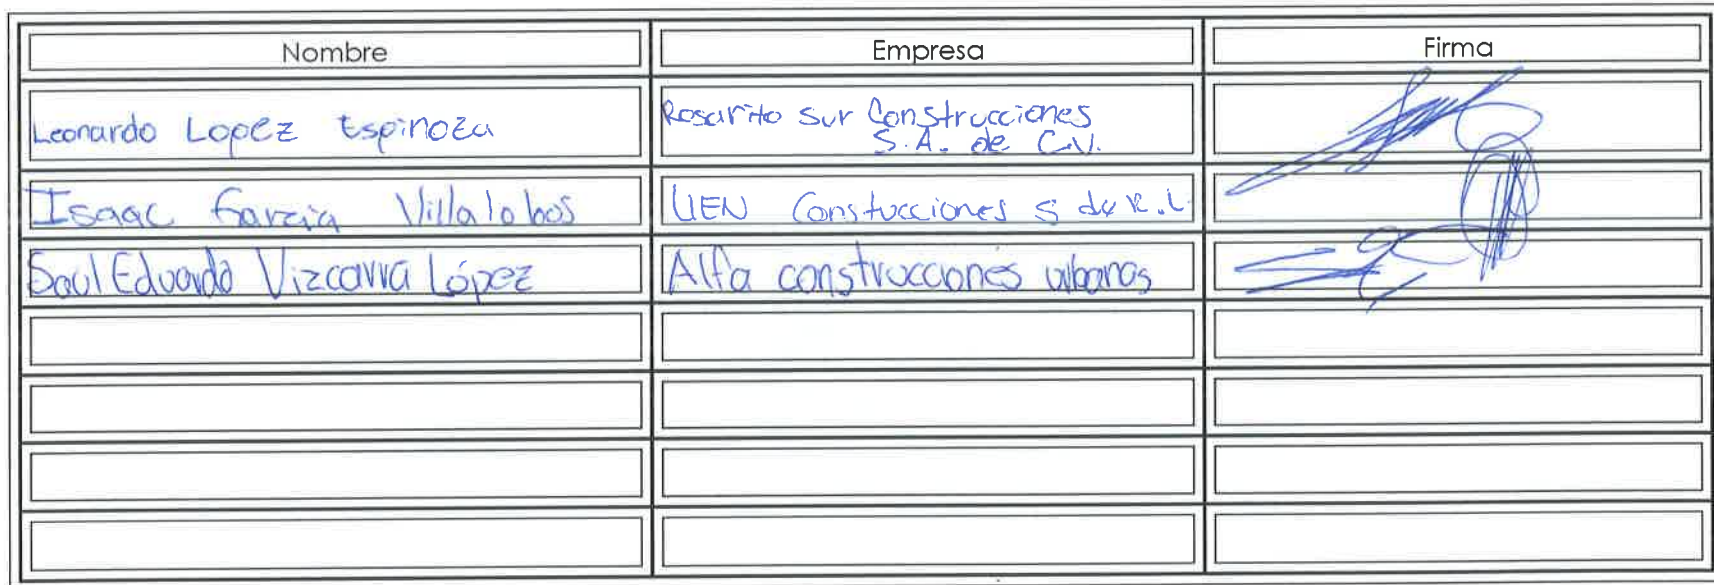 Nombre Empresa Firma
Leonardo Lopez Espinoza Rosarito Sur Construcciones
S.A. de C.V.
Isaac Garcia Villalobos UEN Constucciones S de R.L
Saul Eduardo Vizcarra López Alfa construcciones urbanas